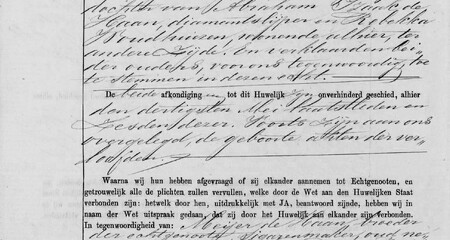 dochter van Abraham Izaak de
Haan, diamantslijper en Rebekka
Woudhuizen, wonende alhier, ter
andere zijde. En verklaarden bei-
der ouders, voor ons tegenwoordig, toe
te stemmen in deze echt.
De beide afkondiging en tot dit Huwelijk zijn onverhinderd geschied, alhier
den dertigsten Mei laatstleden en
zesden dezer. Voorts zijn aan ons
overgelegd, de geboorte akten der ver-
loofden.
Waarna wij hun hebben afgevraagd of zij elkander aannemen tot Echtgenooten, en
getrouwelijk alle de plichten zullen vervullen, welke door de Wet aan den Huwelijken Staat
verbonden zijn: hetwelk door hen, uitdrukkelijk met JA, beantwoord zijnde, hebben wij in
naam der Wet uitspraak gedaan, dat zij door het Huwelijk aan elkander zijn verbonden.
In tegenwoordigheid van: Meijer de Haan, broeder
der echtgenoote, sigarenmaker, oud ne-